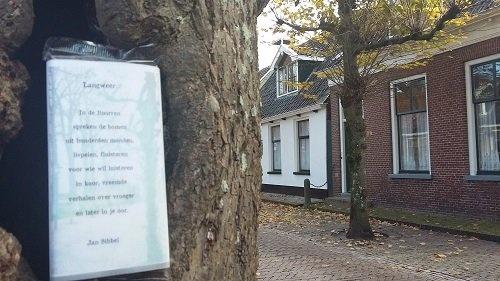 Langweer
In de Buorren
spreken de bomen
uit honderden monden,
lispelen, fluisteren
voor wie wil luisteren
in koor, vreemde
verhalen over vroeger
en later in je oor.
Jan Sibbel